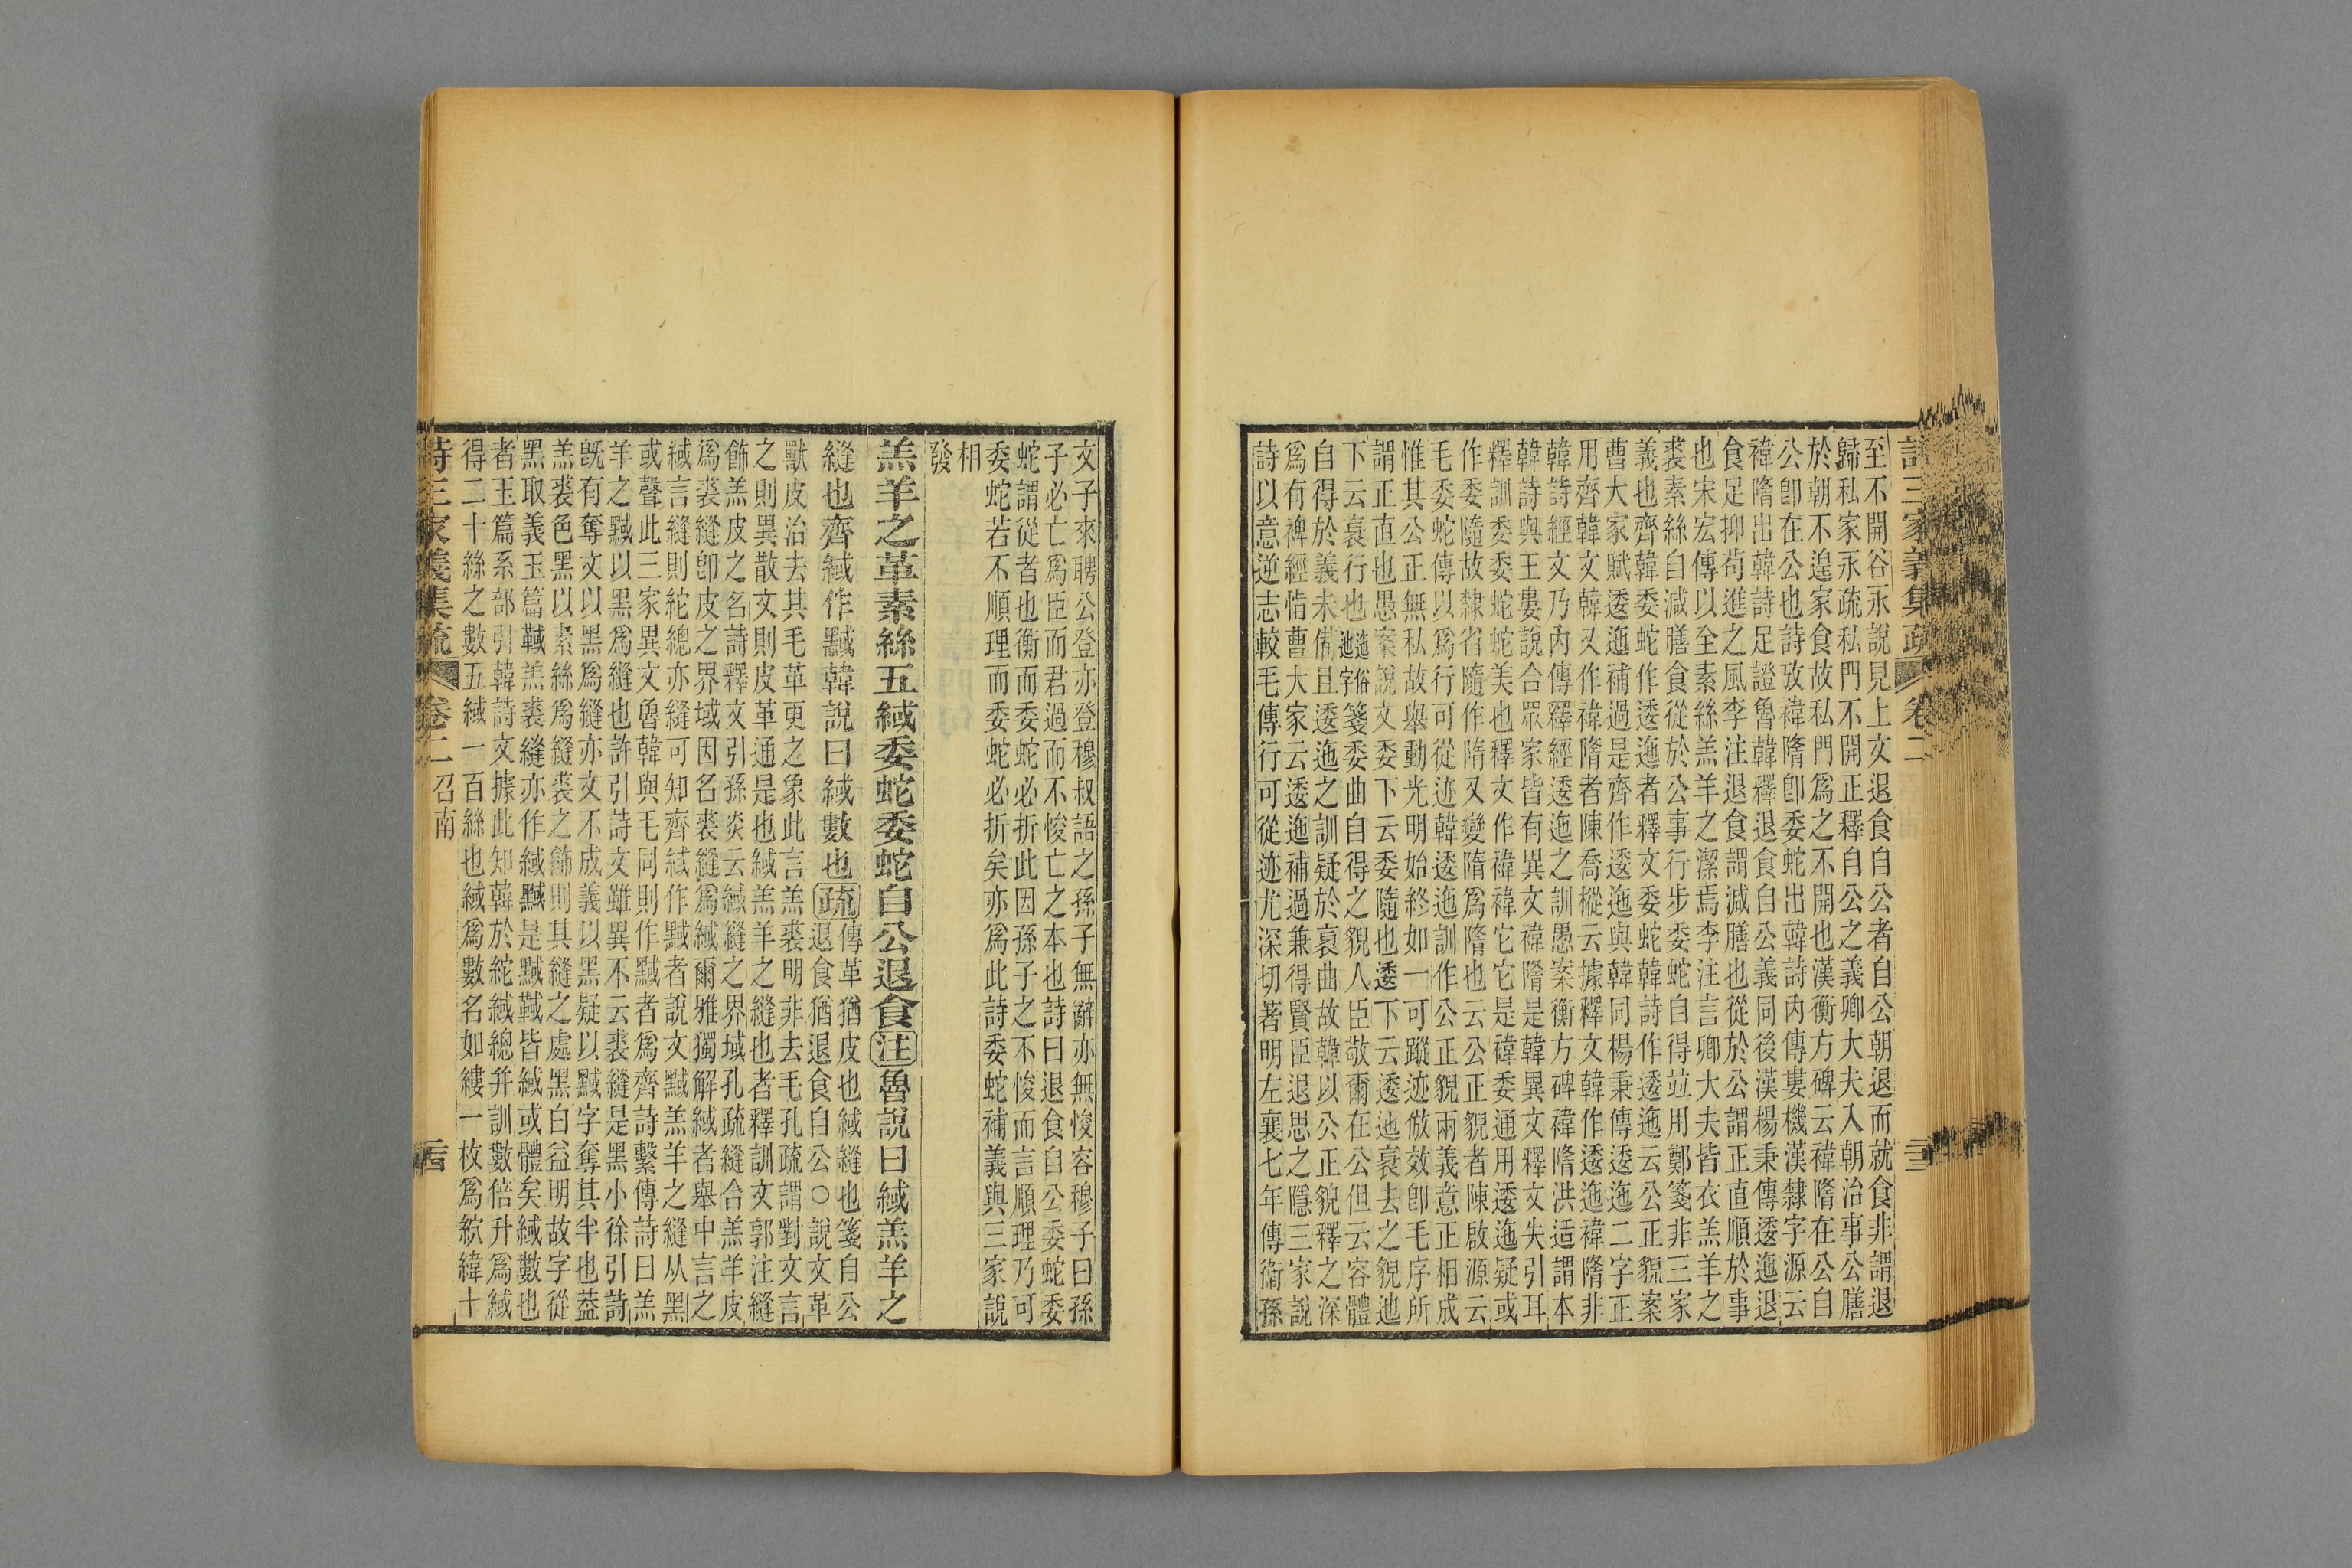 詩三家義集疏 卷二
至不開谷永說見上文退食自公者自公朝退而就食非謂退
歸私家永疏私門不開正釋自公之義卿大夫入朝治事公膳
於朝不遑家食故私門爲之不開也漢衡方碑云褘隋在公自
公卽在公也詩攷褘隋卽委蛇出韓詩內傳婁機漢隸字源云
褘隋出韓詩足證魯韓釋退食自公義同後漢楊秉傳逶迤退
食足抑苟進之風李注退食謂減膳也從於公謂正直順於事
也宋宏傳以全素絲羔羊之潔焉李注言卿大夫皆衣羔羊之
裘素絲自減膳食從於公事行步委蛇自得竝用鄭箋非三家
義也齊韓委蛇作逶迤者釋文委蛇韓詩作逶迤云公正貌案
曹大家賦逶迤補過是齊作逶迤與韓同楊秉傳逶迤二字正
用齊韓文韓又作褘隋者陳喬樅云據釋文韓作逶迤褘隋非
韓詩經文乃內傳釋經逶迤之訓愚案衡方碑褘隋洪适謂本
韓詩與王婁說合眾家皆有異文褘隋是韓異文釋文失引耳
釋訓委委蛇蛇美也釋文作褘褘它它是褘委通用逶迤疑或
作委隨故隸省隨作隋又變隋爲隋也云公正貌者陳啟源云
毛委蛇傳以爲行可從迹韓逶迤訓作公正貌兩義意正相成
惟其公正無私故舉動光明始終如一可蹤迹倣效卽毛序所
謂正直也愚案說文委下云委隨也逶下云逶迆衺去之貌迆
下云衺行也迤俗迆字箋委曲自得之貌人臣敬爾在公但云容體
自得於義未備且逶迤之訓疑於衺曲故韓以公正貌釋之深
爲有裨經恉曹大家云逶迤補過兼得賢臣退思之隱三家說
詩以意逆志較毛傳行可從迹尤深切著明左襄七年傳衞孫
文子來聘公登亦登穆叔語之孫子無辭亦無悛容穆子曰孫
子必亡爲臣而君過而不悛亡之本也詩曰退食自公委蛇委
蛇謂從者也衡而委蛇必折此因孫子之不悛而言順理乃可
委蛇若不順理而委蛇必折矣亦爲此詩委蛇補義與三家說
相
發
羔羊之革素絲五緎委蛇委蛇自公退食注魯說曰緎羔羊之
縫也齊緎作黬韓說曰緎數也疏傳革猶皮也緎縫也箋自公
退食猶退食自公○說文革
獸皮治去其毛革更之象此言羔裘明非去毛孔疏謂對文言
之則異散文則皮革通是也緎羔羊之縫也者釋訓文郭注縫
飾羔皮之名詩釋文引孫炎云緎縫之界域孔疏縫合羔羊皮
爲裘縫卽皮之界域因名裘縫爲緎爾雅獨解緎者舉中言之
緎言縫則紽總亦縫可知齊緎作黬者說文黬羔羊之縫从黑
或聲此三家異文魯韓與毛同則作黬者爲齊詩繫傳詩曰羔
羊之黬以黑爲縫也許引詩文雖異不云裘縫是黑小徐引詩
旣有奪文以黑爲縫亦文不成義以黑疑以黬字奪其半也葢
羔裘色黑以素絲爲縫裘之飾則其縫之處黑白益明故字從
黑取義玉篇䩹羔裘縫亦作緎黬是黬䩹皆緎或體矣緎數也
者玉篇系部引韓詩文據此知韓於紽緎總并訓數倍升爲緎
得二十絲之數五緎一百絲也緎爲數名如縷一枚爲紋緯十
詩三家義集疏 卷二 召南